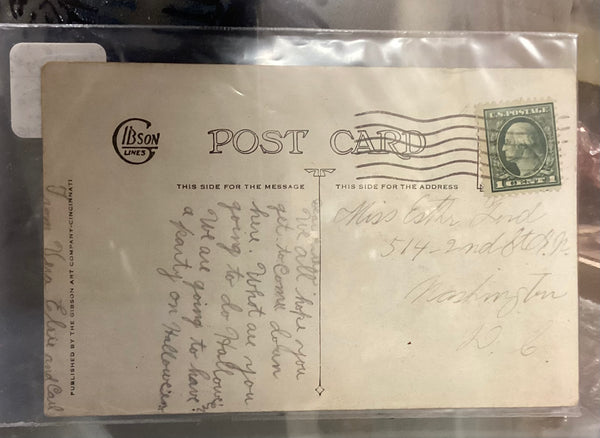 GIBSON
LINES
POST CARD
THIS SIDE FOR THE MESSAGE
THIS SIDE FOR THE ADDRESS
U.S. POSTAGE
1 CENT 1
We all hope you
get to come down
here. What are you
going to do Hallowe'
We are going to have
a party on Hallowe'en
From Vera Elsie and Carl
PUBLISHED BY THE GIBSON ART COMPANY-CINCINNATI
Miss Esther Ford
514-2nd St
Washington
D. C.